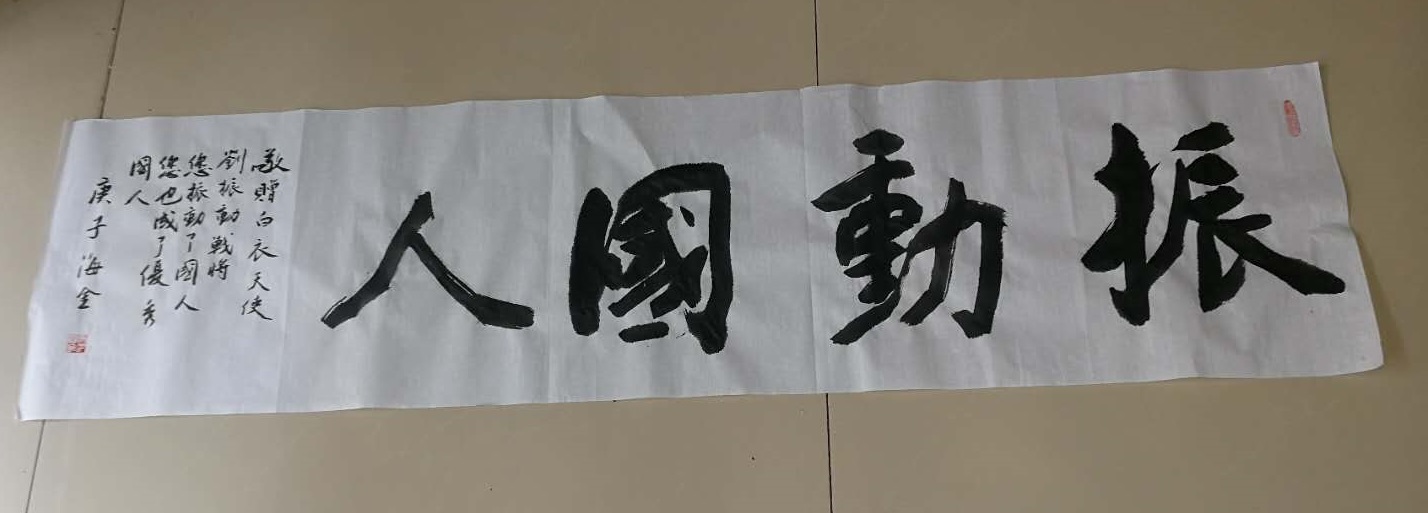 振動國人
敬贈白衣天使
劉振動戰將
您振動了國人
您也成了優秀
國人
庚子海金